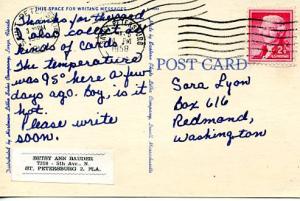 THIS SPACE FOR WRITING MESSAGES
Thanks for the card
I also collect all
kinds of cards.
The temperature
was 95° here a few
days ago. Boy, is it
hot.
Please write
soon.
BETSY ANN BAUDER
7219 - 5th Ave., N.
ST. PETERSBURG 2, FLA.
1958
2¢
POST CARD
Sara Lyon
Box 616
Redmond,
Washington